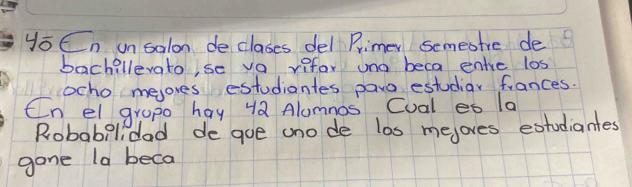 40 En un salon de clases del Primer semestre de
bachillerato, se va rifar una beca entre los
ocho mejores estudiantes para estudiar frances.
En el grupo hay 42 Alumnos Cual es la
Robabilidad de que uno de los mejores estudiantes
gane la beca